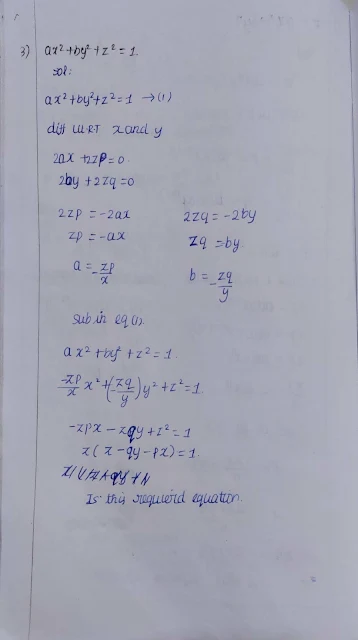 3) ax²+by²+z²=1.
sol:
ax²+by²+z²=1 →(1)
diff W.RT x and y
2ax +2zp=0.
2by +2zq=0
2zp = -2ax 2zq = -2by
zp = -ax zq = by
a = -zp/x b = -zq/y
sub in eq (1).
ax²+by²+z²=1.
-zp/x x²+(-zq/y)y²+z²=1
-zpx-zqy+z²=1
z(z-qy-px)=1.
Is this requierd equation.